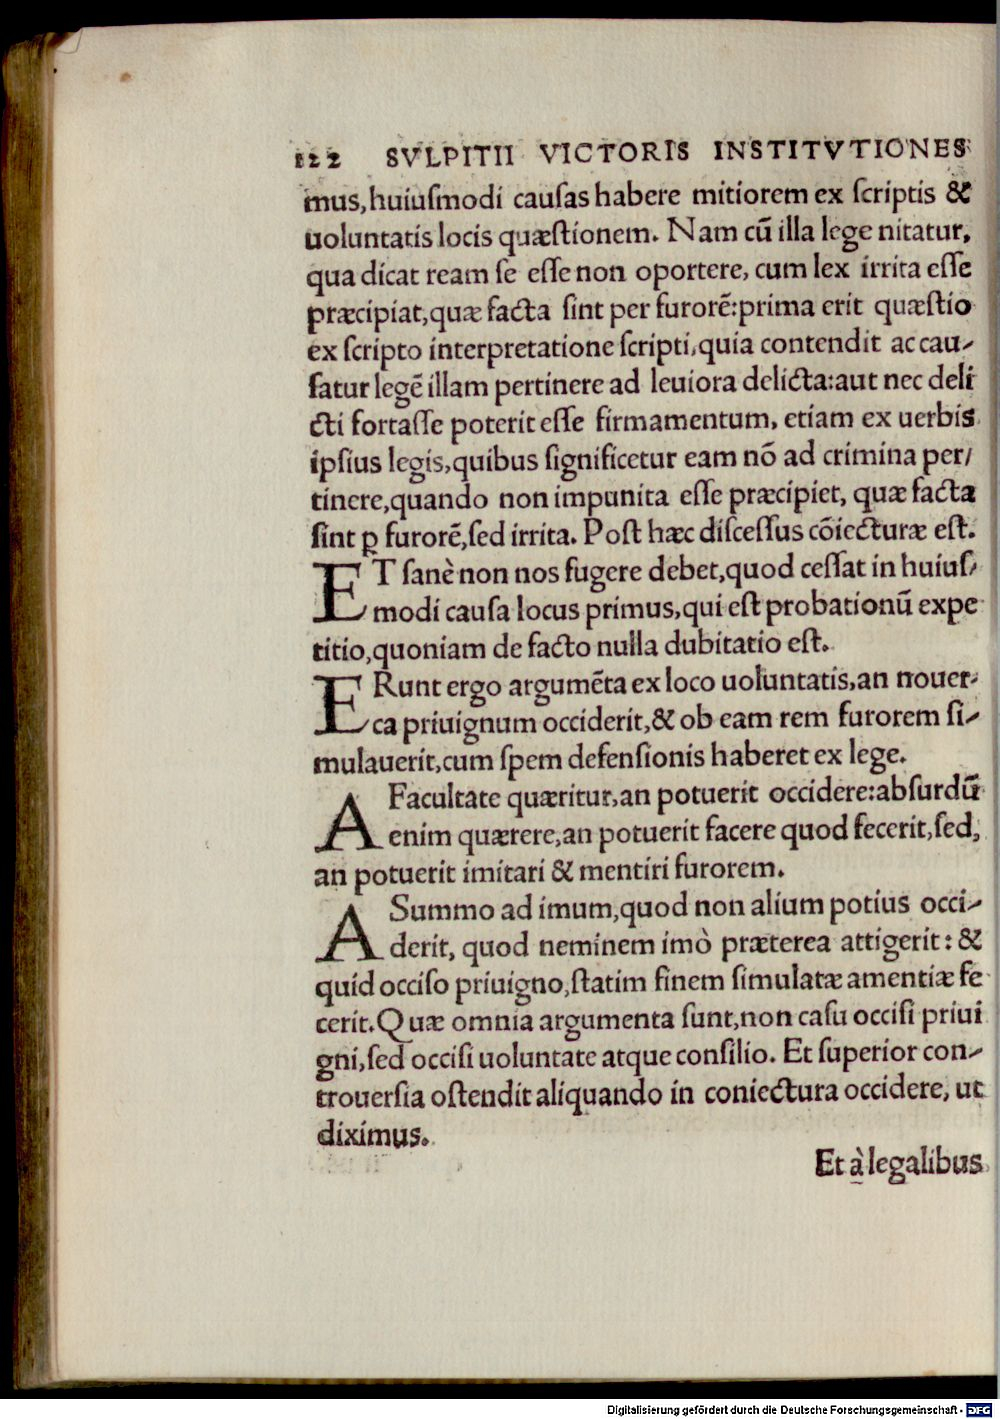 122 SVLPITII VICTORIS INSTITVTIONES
mus,huiuſmodi cauſas habere mitiorem ex ſcriptis &
uoluntatis locis quæſtionem. Nam cū illa lege nitatur,
qua dicat ream ſe eſſe non oportere, cum lex irrita eſſe
præcipiat,quæ facta ſint per furorē:prima erit quæſtio
ex ſcripto interpretatione ſcripti,quia contendit ac cau-
ſatur legē illam pertinere ad leuiora delicta:aut nec deli
cti fortaſſe poterit eſſe firmamentum, etiam ex uerbis
ipſius legis,quibus ſignificetur eam nō ad crimina per/
tinere,quando non impunita eſſe præcipiet, quæ facta
ſint ꝑ furorē,ſed irrita. Poſt hæc diſceſſus cōiecturæ eſt.
ET ſanè non nos fugere debet,quod ceſſat in huiuſ-
modi cauſa locus primus,qui eſt probationū expe
titio,quoniam de facto nulla dubitatio eſt.
ERunt ergo argumēta ex loco uoluntatis,an nouer-
ca priuignum occiderit,& ob eam rem furorem ſi-
mulauerit,cum ſpem defenſionis haberet ex lege.
A Facultate quæritur,an potuerit occidere:abſurdū
enim quærere,an potuerit facere quod fecerit,ſed,
an potuerit imitari & mentiri furorem.
A Summo ad imum,quod non alium potius occi-
derit, quod neminem imò præterea attigerit: &
quid occiſo priuigno,ſtatim finem ſimulatæ amentiæ fe
cerit.Quæ omnia argumenta ſunt,non caſu occiſi priui
gni,ſed occiſi uoluntate atque conſilio. Et ſuperior con-
trouerſia oſtendit aliquando in coniectura occidere, ut
diximus.
Et à legalibus
Digitalisierung gefördert durch die Deutsche Forschungsgemeinschaft - DFG